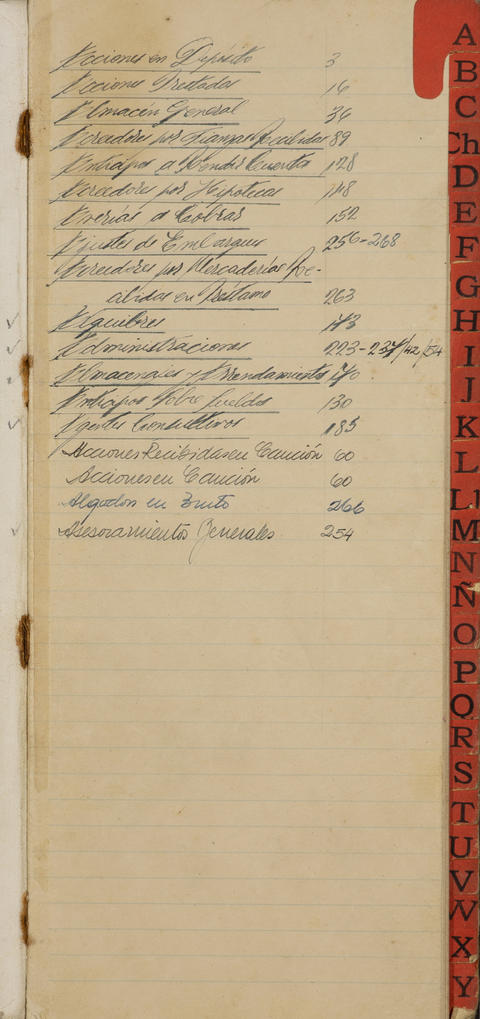 Acciones en Depósito 3
Acciones Prestadas 16
Almacén General 36
Acreedores por Fianzas Recibidas 89
Anticipos a Rendir Cuentas 128
Acreedores por Hipotecas 148
Averías a Cobrar 152
Ajustes de Embarques 256-268
Acreedores por Mercaderías Re-
cibidas en Préstamo 263
Alquileres 173
Administraciones 223-237/42/54
Almacenajes y Arrendamientos 170
Anticipos Sobre Sueldos 130
Agentes Consultivos 185
Acciones Recibidas en Caución 60
Acciones en Caución 60
Algodón en Bruto 266
Asesoramientos Generales 254
A
B
C
Ch
D
E
F
G
H
I
J
K
L
LL
M
N
Ñ
O
P
Q
R
S
T
U
V
W
X
Y